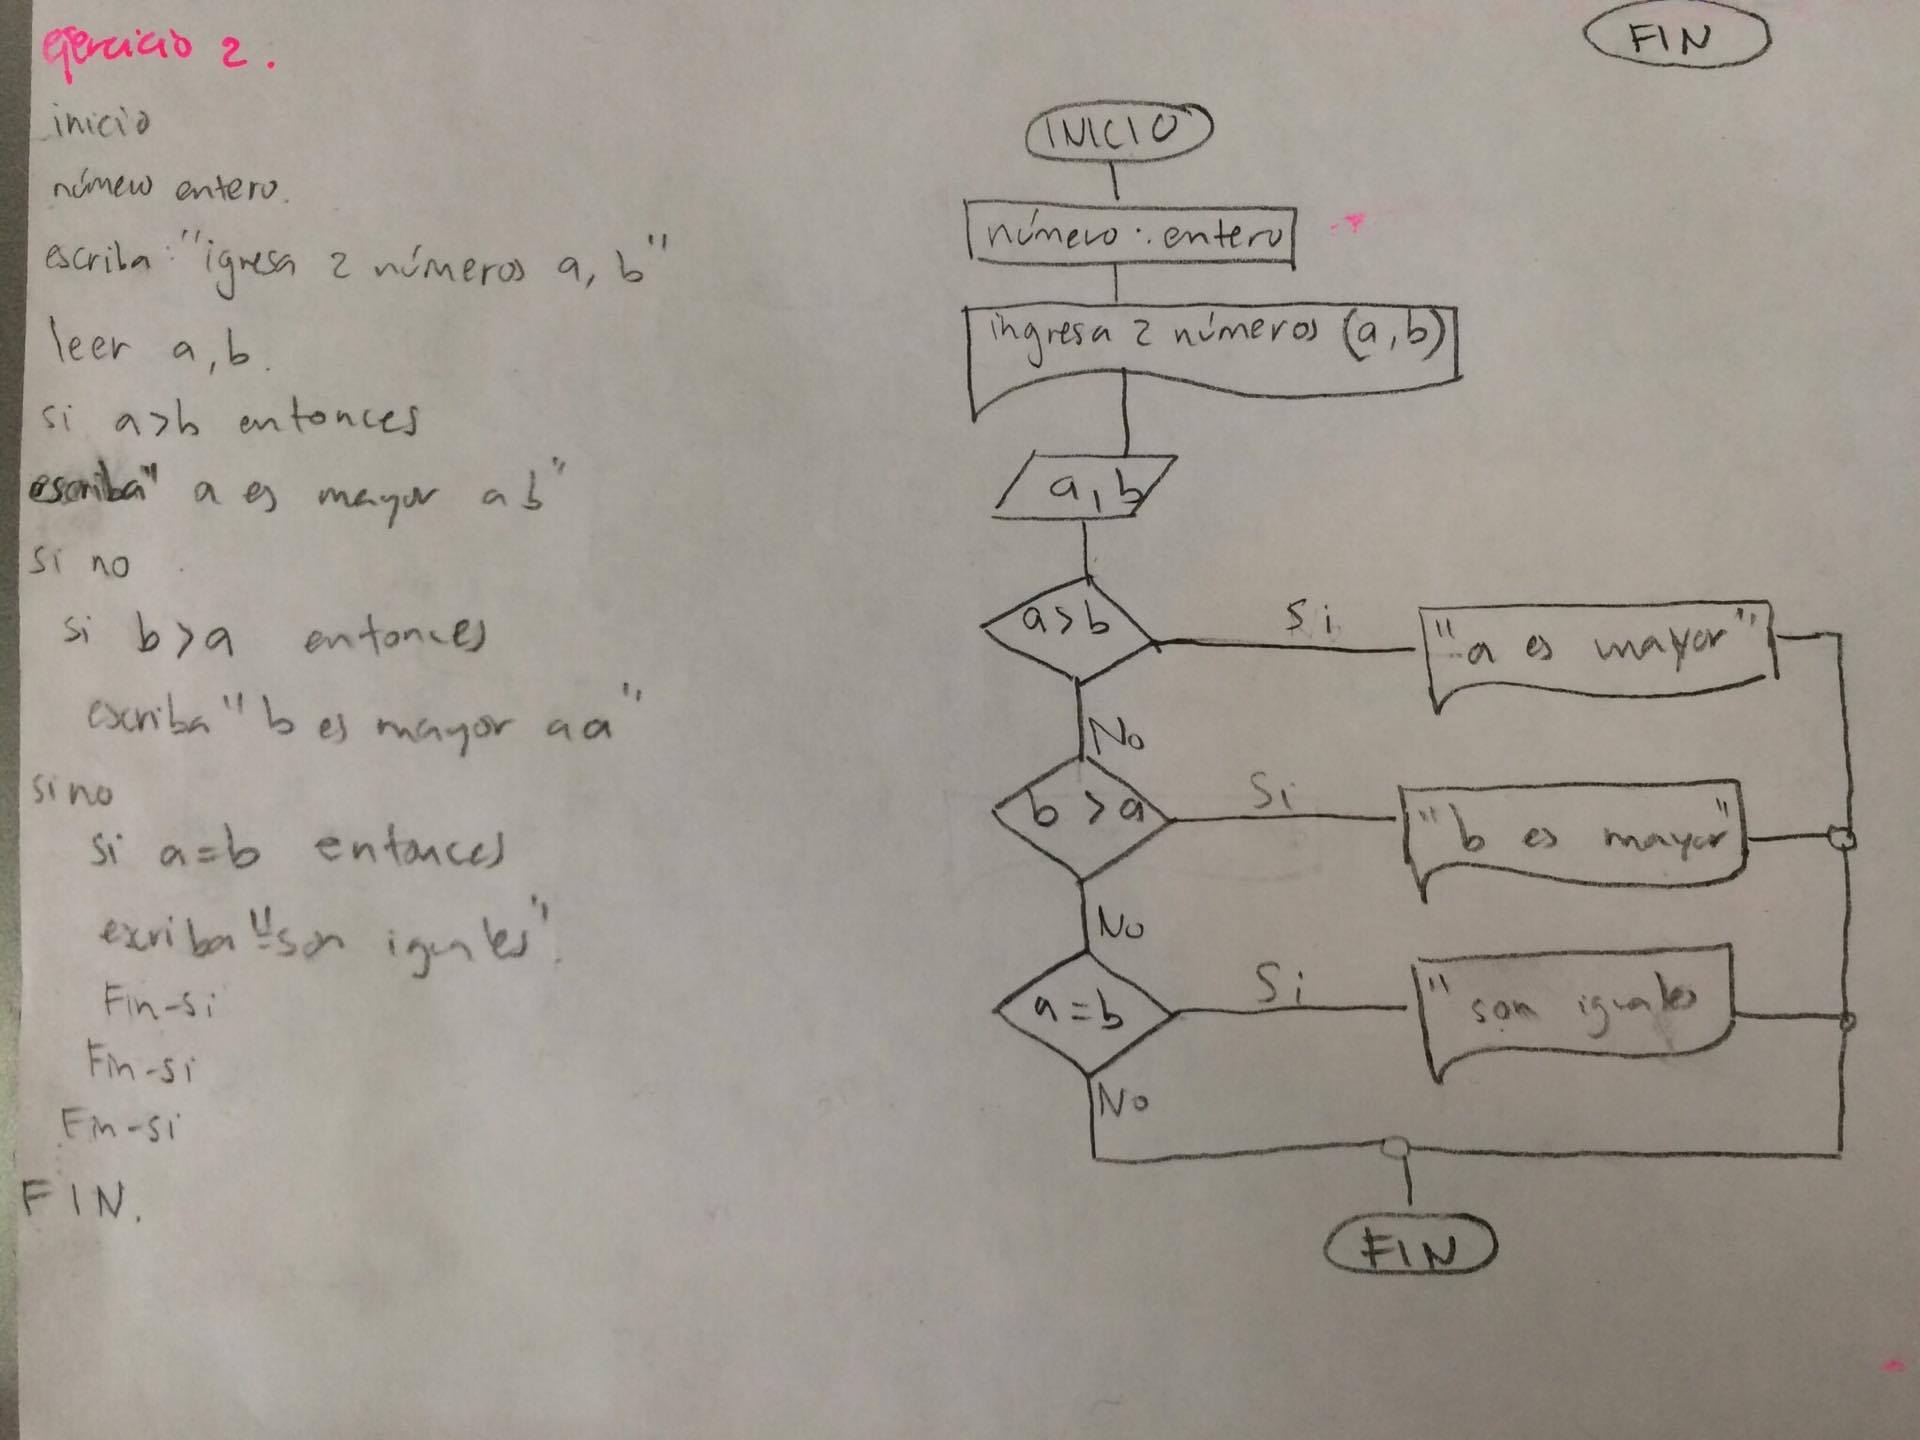 ejercicio 2.
inicio
número entero.
escriba: "igresa 2 números a, b"
leer a, b.
si a>b entonces
escriba" a es mayor a b"
si no
si b>a entonces
escriba "b es mayor a a"
sino
si a=b entonces
escriba "son iguales".
Fin-si
Fin-si
Fin-si
FIN.
FIN
INICIO
número : entero
ingresa 2 números (a, b)
a, b
a>b
Si
"a es mayor"
No
b >a
Si
"b es mayor"
No
a=b
Si
" son iguales
No
FIN